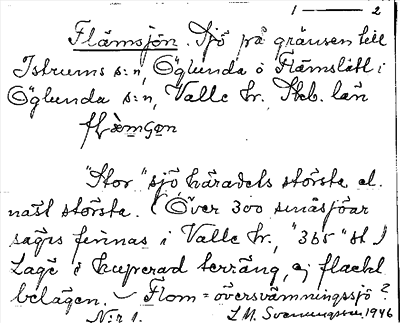 1 — 2
Flämsjön. Sjö på gränsen till
Istrums s:n, Öglunda o Flämslätt i
Öglunda s:n, Valle hr. Skb. län
"Stor" sjö, häradets största el.
näst största. (Över 300 småsjöar
sägs finnas i Valle hr, "365" st.)
Läge i kuperad terräng, ej flackt
belägen. — Flom = översvämningssjö?
N:r 1. L M. Svenungsson, 1946